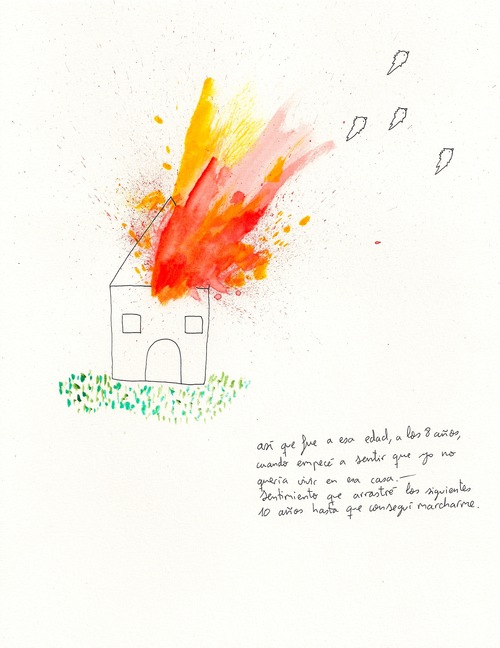 así que fue a esa edad, a los 8 años,
cuando empecé a sentir que yo no
quería vivir en esa casa.—
Sentimiento que arrastré los siguientes
10 años hasta que conseguí marcharme.